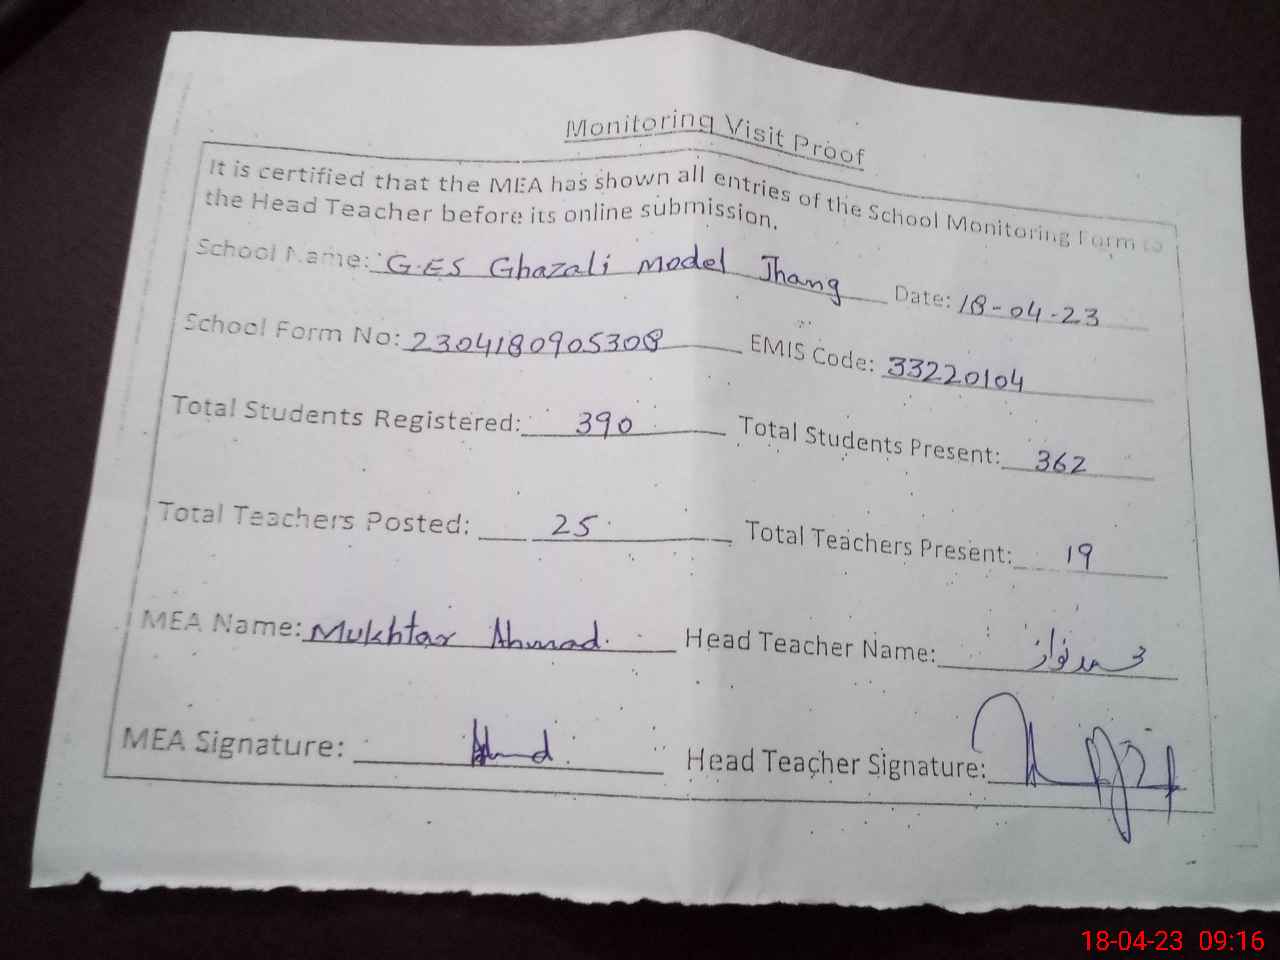 Monitoring Visit Proof
It is certified that the MEA has shown all entries of the School Monitoring Form to
the Head Teacher before its online submission.
School Name: G.ES Ghazali Model Jhang Date: 18-04-23
School Form No: 2304180905308 EMIS Code: 33220104
Total Students Registered: 390 Total Students Present: 362
Total Teachers Posted: 25 Total Teachers Present: 19
MEA Name: Mukhtar Ahmad. Head Teacher Name: محمد نواز
MEA Signature: Head Teacher Signature:
18-04-23 09:16